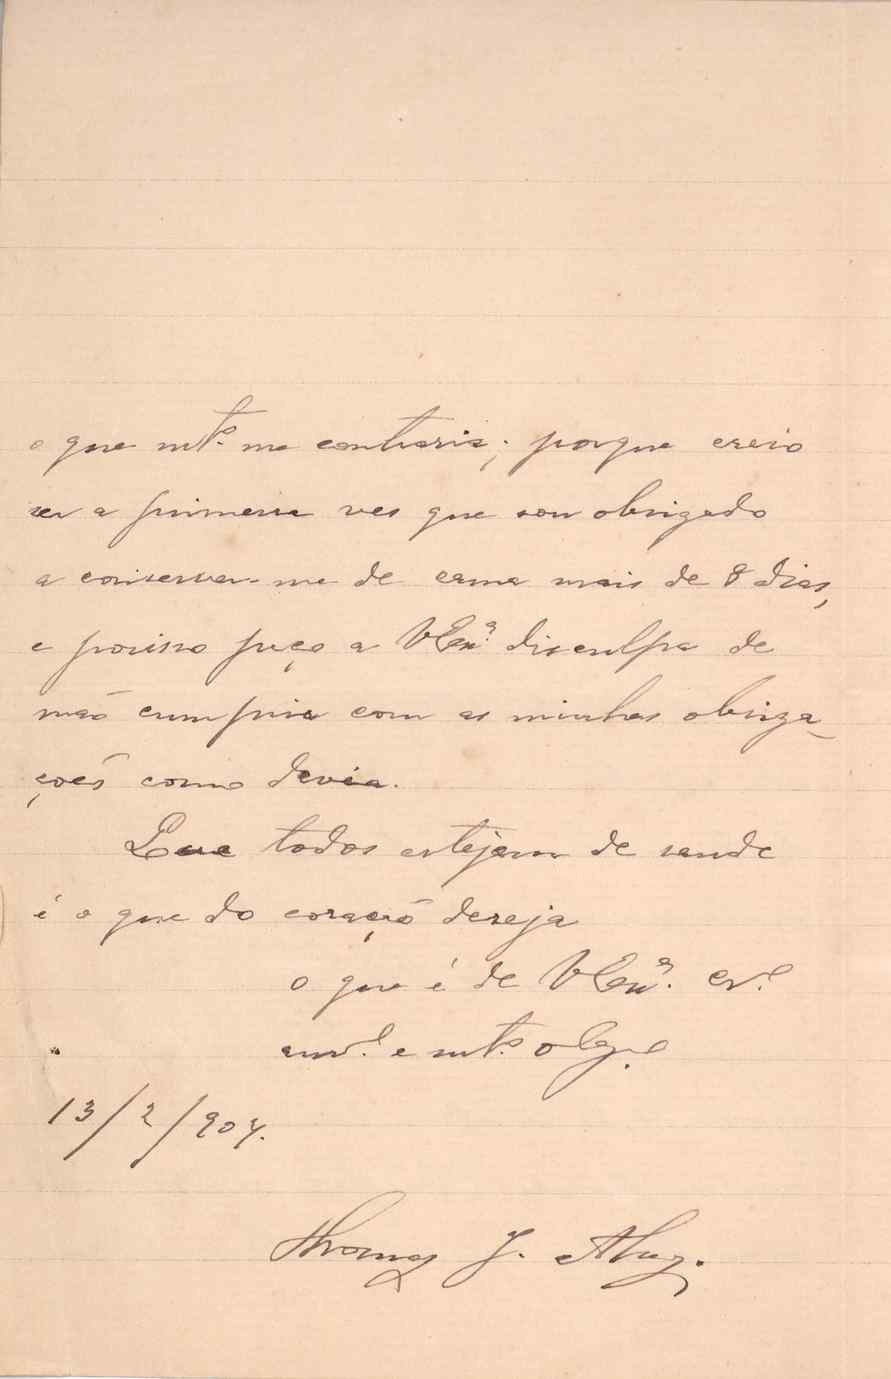 o que mt.º me contraria; porque creio
ser a primeira ves que sou obrigado
a conservar-me de cama mais de 8 dias,
e porisso peço a VExª. disculpa de
não cumprir com as minhas obriga_
ções como devia.
Que todos estejam de saude
é o que do coração deseja
o que é de VExª. cr.º
am.º e mt.º obg.º
13/2/907.
Thomaz J.